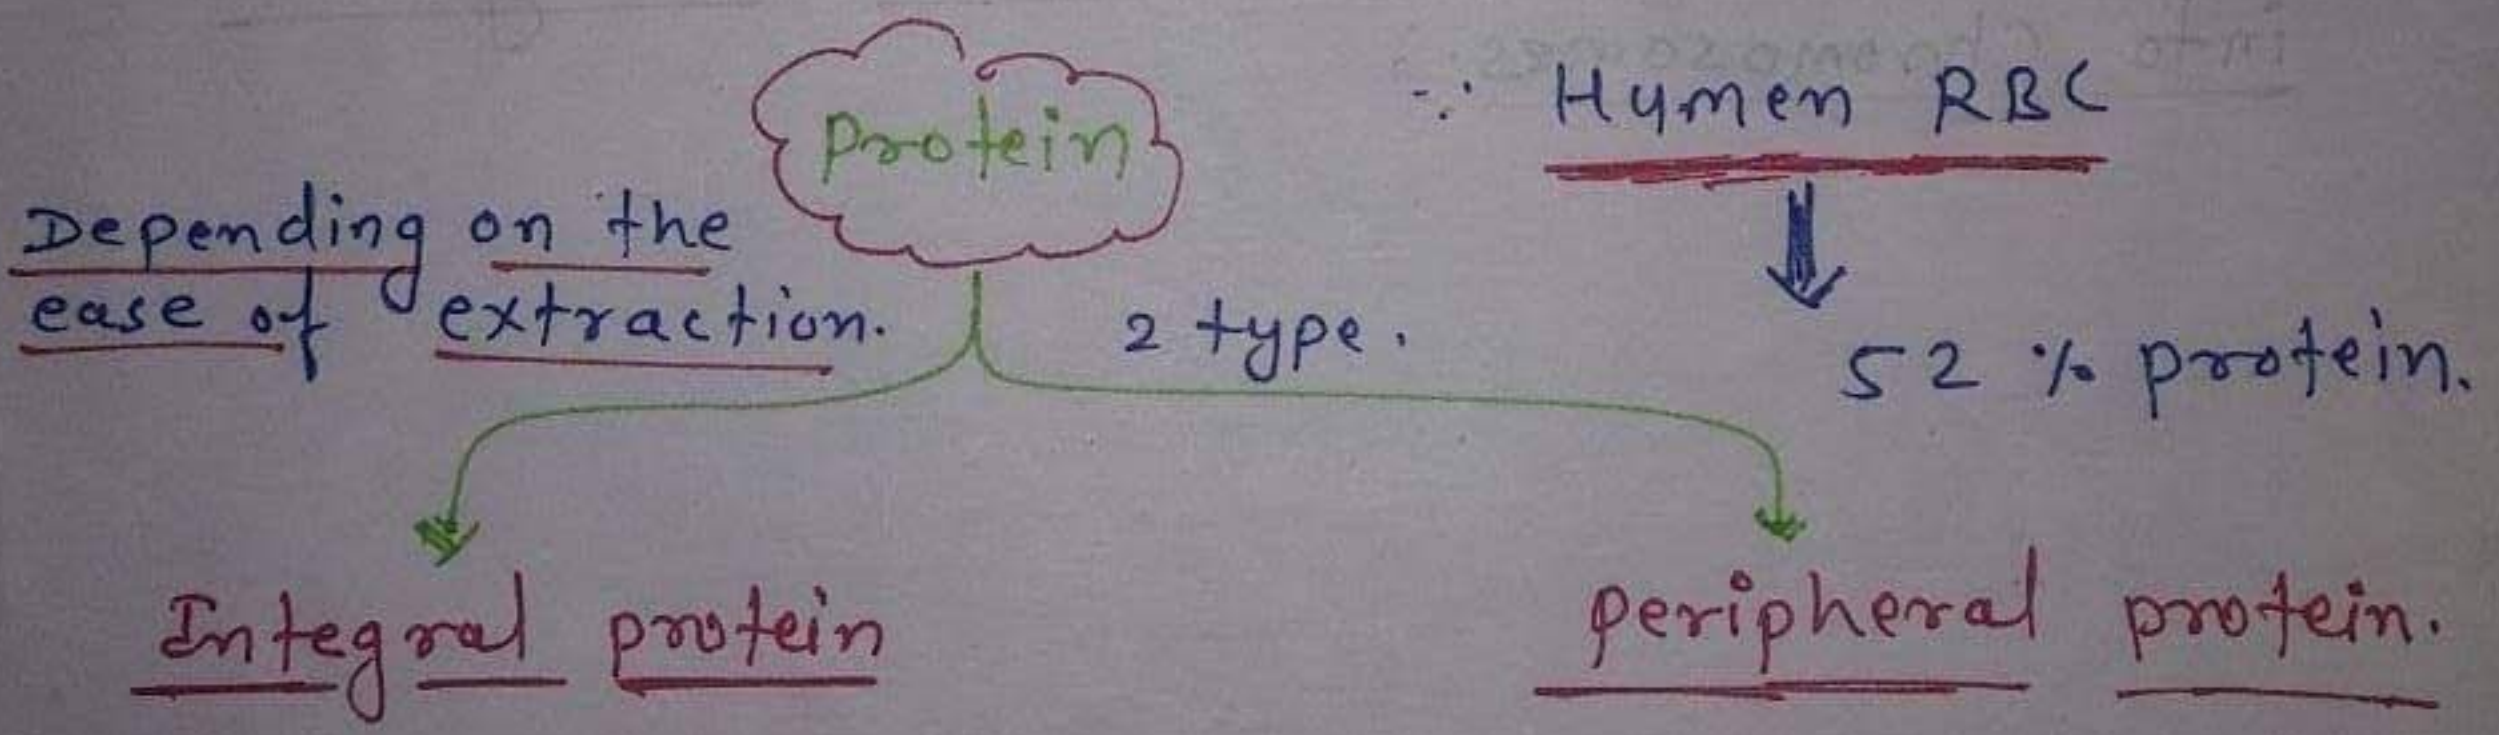 protein
∵ Humen RBC
Depending on the
ease of extraction.
2 type.
52 % protein.
Integral protein
peripheral protein.